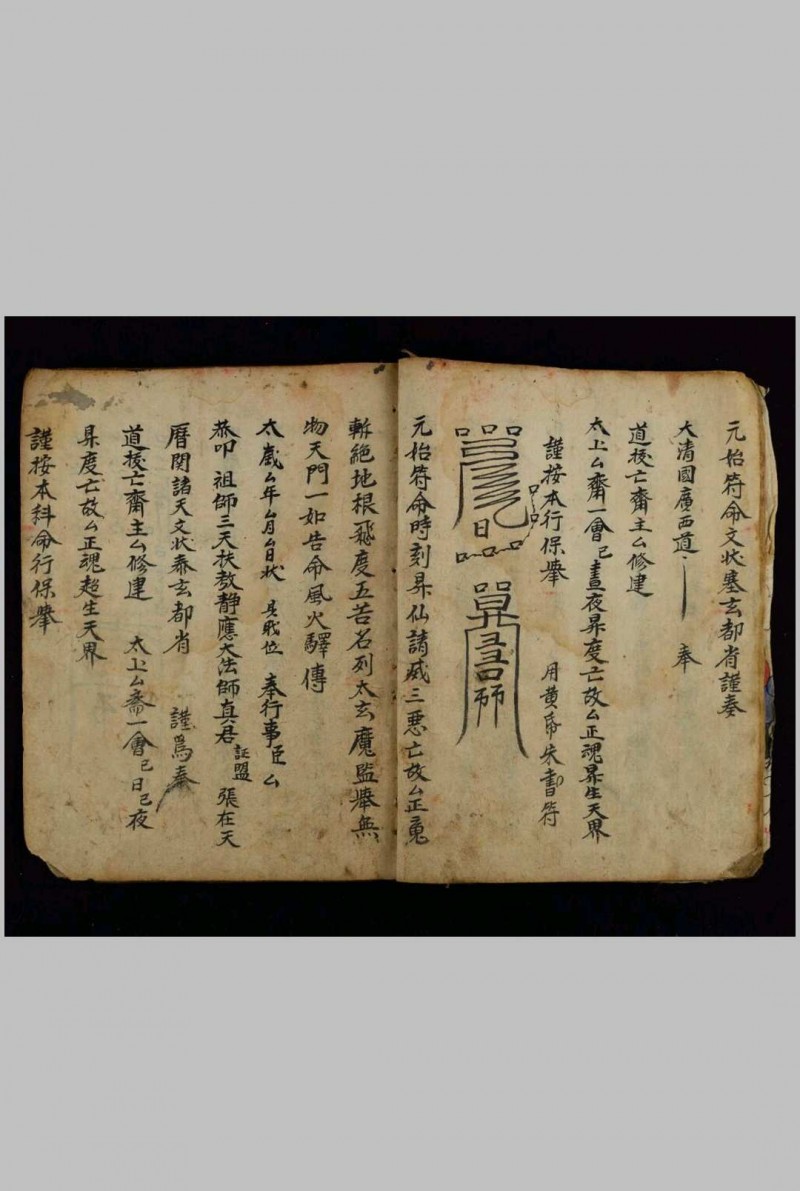 元始符命文状塞玄都省謹奏
大清國廣西道 奉
道援亡齋主厶修建
太上厶齋一會已晝夜昇度亡故厶正魂昇生天界
謹按本行保舉 用黄帋朱書符
元始符命時刻昇仙請滅三惡亡故厶正魂
斬絶地根飛度五苦名列太玄魔監舉無
拘天門一如告命風火驛傳
太歲厶年厶月厶日状 具戝位 奉行事臣厶
恭叩 祖師三天扶教静應大法師真君 証盟 張在天
厝関諸天文状泰玄都省 謹爲奏
道援亡齋主厶修建 太上厶齋一會已日已夜
昇度亡故厶正魂超生天界
謹按本科命行保舉